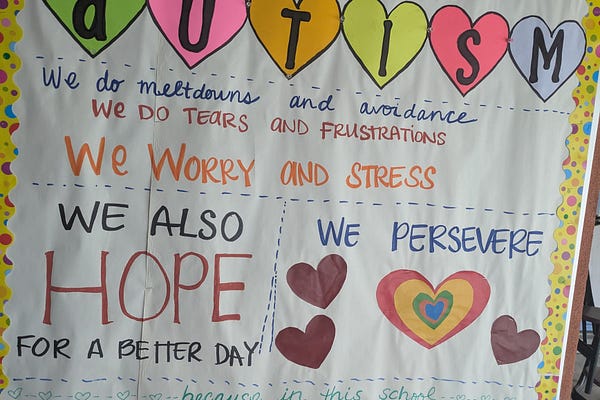 aUTISM
We do meltdowns and avoidance
WE DO TEARS AND FRUSTRATIONS
We WORRY AND STRESS
WE ALSO
HOPE
FOR A BETTER DAY
WE PERSEVERE
because in this school